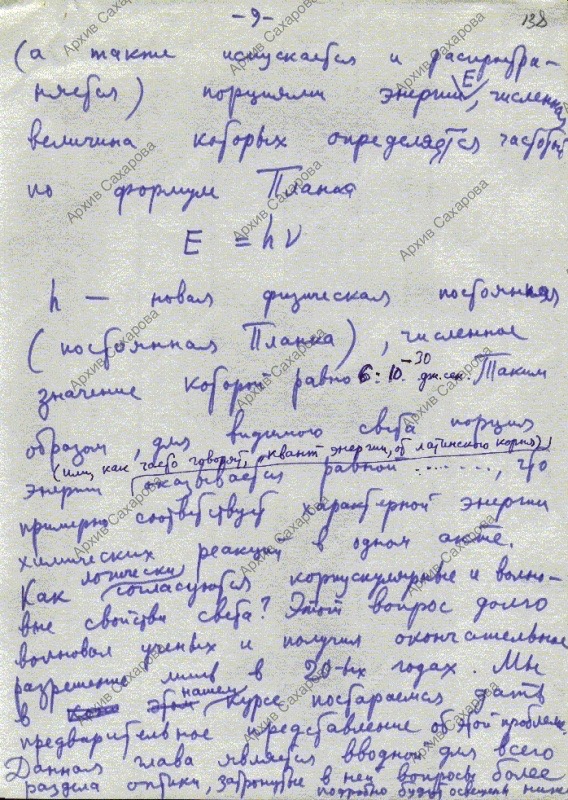 -9-
138
(а также испускается и распростра-
няется) порциями энергии E, численная
величина которых определяется частотой
по формуле Планка
E = hν
h — новая физическая постоянная
(постоянная Планка), численное
значение которой равно 6·10⁻³⁰ дж.сек. Таким
образом, для видимого света порция
(или, как часто говорят, квант энергии, от латинского корня)
энергии оказывается равной ........, что
примерно соответствует характерной энергии
химических реакций в одном акте.
Как логически согласуются корпускулярные и волно-
вые свойства света? Этот вопрос долго
волновал ученых и получил окончательное
разрешение лишь в 20-ых годах. Мы
в нашем курсе постараемся дать
предварительное представление об этой проблеме.
Данная глава является вводной для всего
раздела оптики, затронутые в ней вопросы более
подробно будут освещены ниже
Архив Сахарова